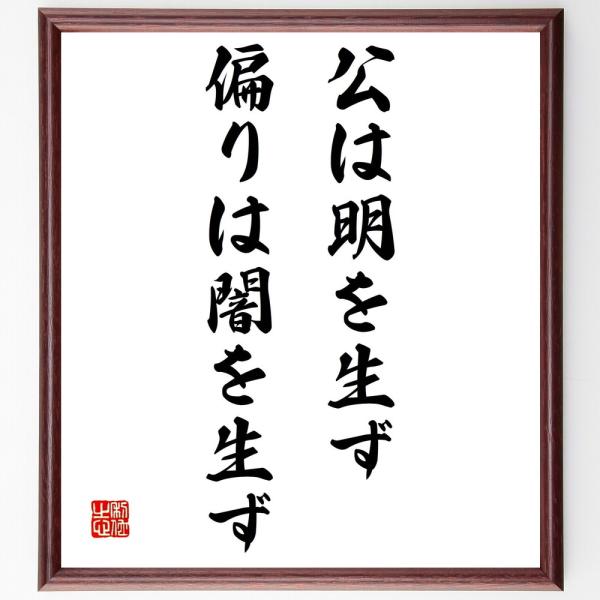 公は明を生ず
偏りは闇を生ず